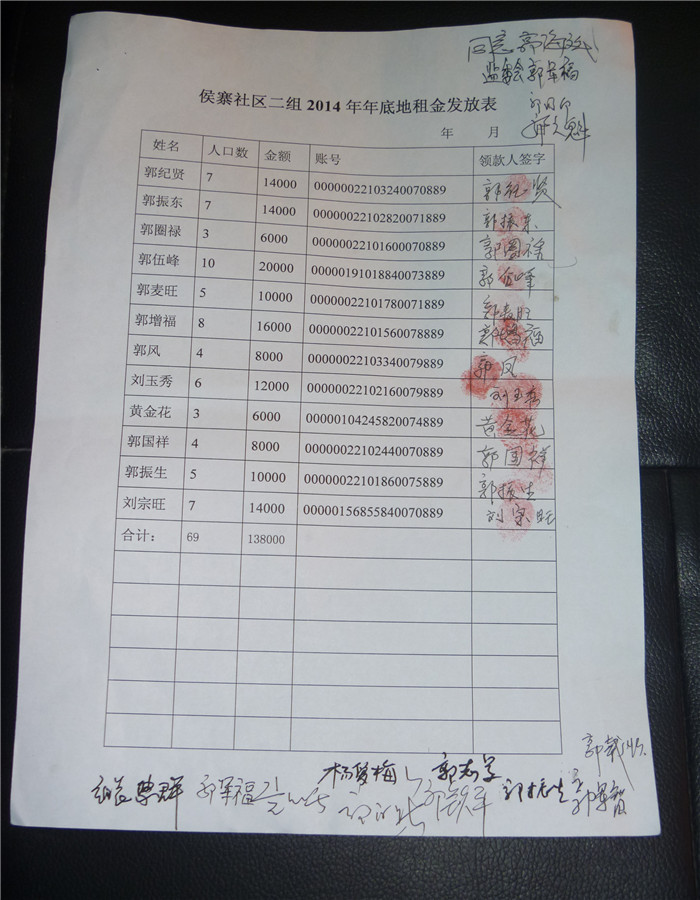 同意 郭海政
监委会 郭军福
侯寨社区二组 2014 年年底地租金发放表
年 月
姓名 人口数 金额 账号 领款人签字
郭纪贤 7 14000 00000022103240070889 郭纪贤
郭振东 7 14000 00000022102820071889 郭振东
郭圈禄 3 6000 00000022101600070889 郭圈禄
郭伍峰 10 20000 00000191018840073889 郭伍峰
郭麦旺 5 10000 00000022101780071889 郭麦旺
郭增福 8 16000 00000022101560078889 郭增福
郭风 4 8000 00000022103340079889 郭凤
刘玉秀 6 12000 00000022102160079889 刘玉秀
黄金花 3 6000 00000104245820074889 黄金花
郭国祥 4 8000 00000022102440070889 郭国祥
郭振生 5 10000 00000022101860075889 郭振生
刘宗旺 7 14000 00000156855840070889 刘宗旺
合计： 69 138000
郭军福 杨爱梅 郭志学 郭振生